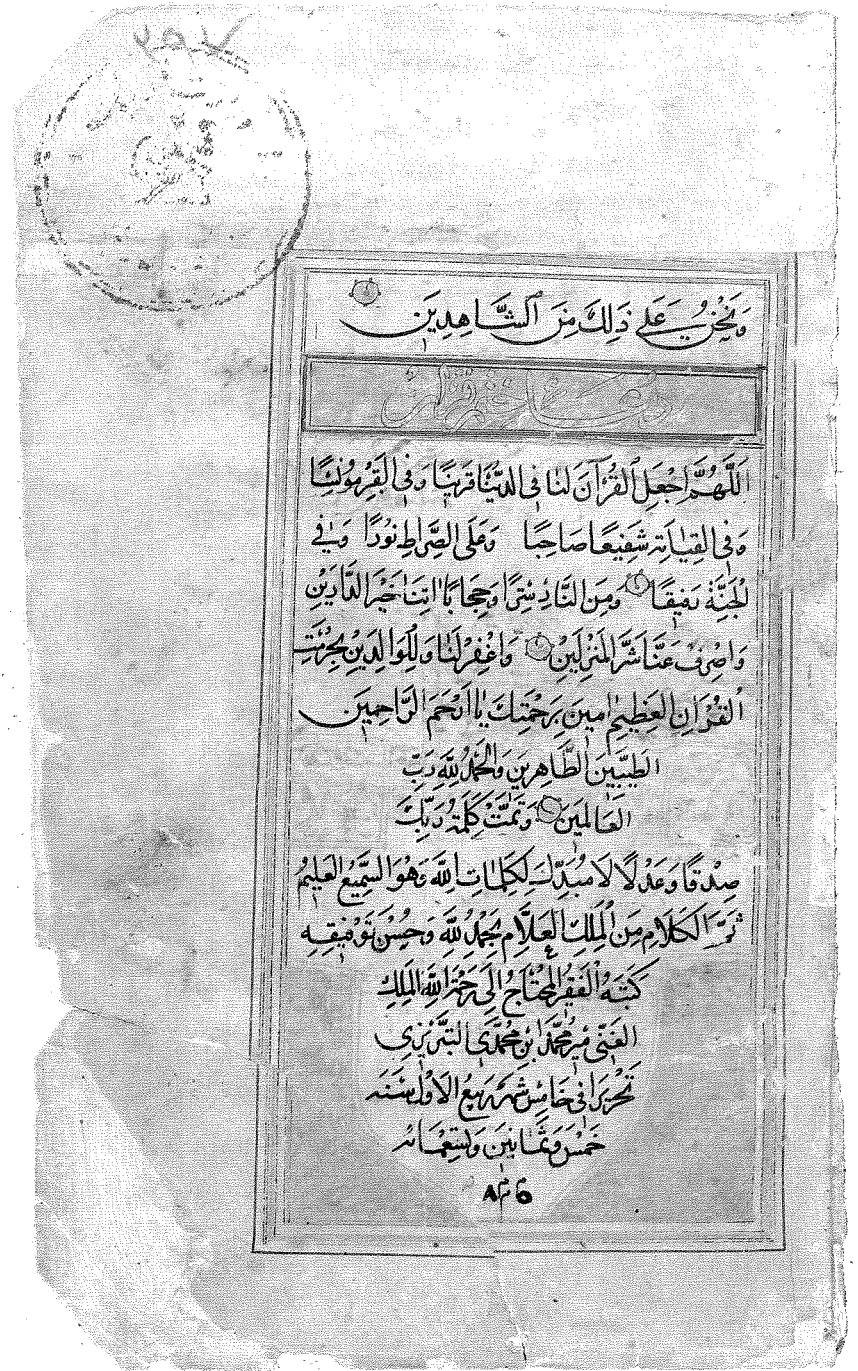 وَنَحْنُ عَلَى ذَلِكَ مِنَ ٱلشَّاهِدِينَ
دعاء ختم قرآن
اَللَّهُمَّ اجْعَلِ الْقُرْآنَ لَنَا فِي الدُّنْيَا قَرِينًا وَفِي الْقَبْرِ مُونِسًا
وَفِي الْقِيَامَةِ شَفِيعًا صَاحِبًا وَعَلَى الصِّرَاطِ نُورًا وَفِي
الْجَنَّةِ رَفِيقًا وَمِنَ النَّارِ سِتْرًا وَحِجَابًا
وَاصْرِفْ عَنَّا شَرَّ الْمُنْزَلِينَ وَاغْفِرْ لَنَا وَلِلْوَالِدَيْنِ بِحُرْمَتِ
الْقُرْآنِ الْعَظِيمِ امِينَ بِرَحْمَتِكَ يَا اَرْحَمَ الرَّاحِمِينَ
الطَّيِّبِينَ الطَّاهِرِينَ وَالْحَمْدُ لِلَّهِ رَبِّ
الْعَالَمِينَ وَتَمَّتْ كَلِمَةُ رَبِّكَ
صِدْقًا وَعَدْلًا لَا مُبَدِّلَ لِكَلِمَاتِ اللَّهِ وَهُوَ السَّمِيعُ الْعَلِيمُ
تَمَّ الْكَلَامِ مِنَ الْمَلِكِ الْعَلَّامِ بِحَمْدِ لِلَّهِ وَحُسْنِ تَوْفِيقِهِ
كَتَبَهُ الْفَقِيرُ الْمُحْتَاجُ اِلَى رَحْمَةِ اللَّهِ الْمَلِكِ
الْغَنِيِّ مِيرْ مُحَمَّد ابْنِ مُحَمَّدِي التَّبْرِيزِي
تَحْرِيرًا فِي خَامِسْ شَهْرِ رَبِيعُ الْاَوَّلْ سَنَة
خَمْسَ وَثَمَانِينَ وَتِسْعَمَائَة